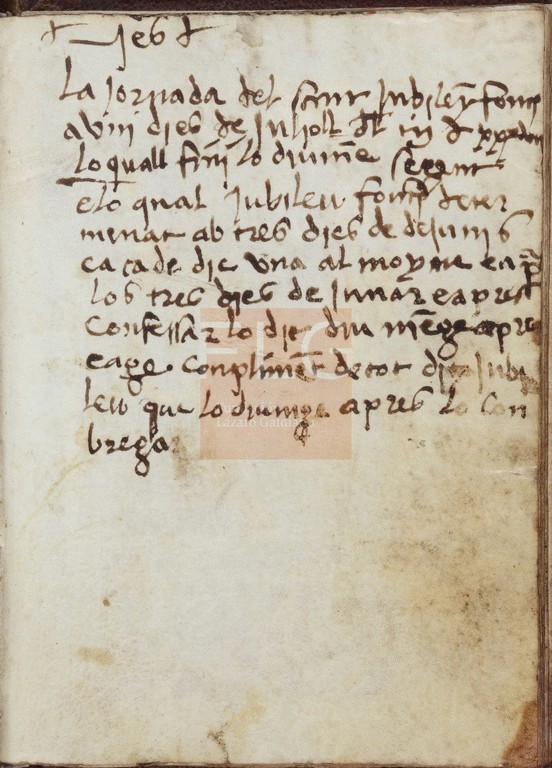 + Jes +
La Jornada del sant Jubileu fonch
a viii dies de Juholl
lo quall fini lo diumẽe seguent
e lo qual Jubileu fonch deter
menat ab tres dies de dejunis
e a cade die una almoyne e a
los tres dies de junar e apres
Confessar lo dit diumẽge apre
e age conpliment de tot dit Jubi
leu que lo diumge apres lo con
bregar
Lázaro Galdiano